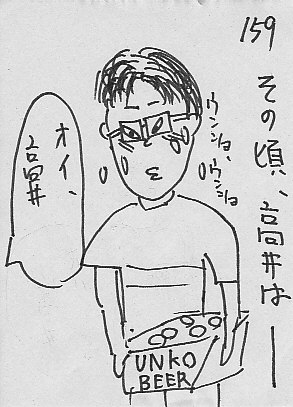 159
その頃、高井は――
ウンショ、
ウンショ
オイ、
高井
UNKO
BEER